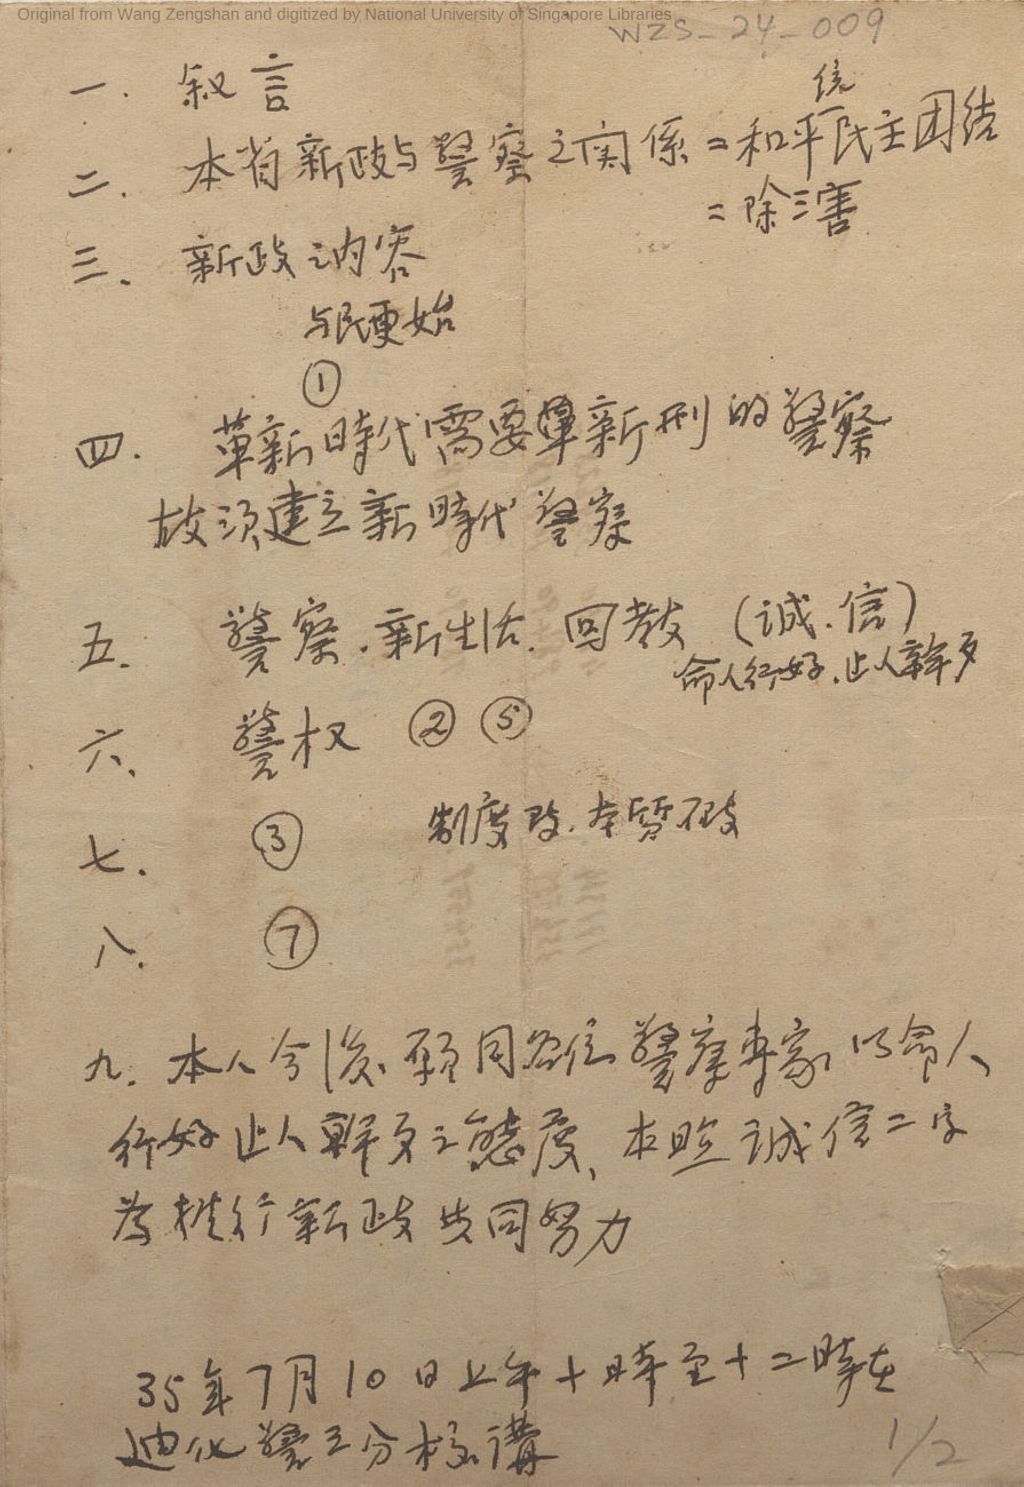 Original from Wang Zengshan and digitized by National University of Singapore Libraries
WZS-24-009
一. 叙言
統
二. 本省新政与警察之関係=和平民主团结
=除三害
三、新政之内容
与民更始
①
四. 革新時代需要革新刑的警察
故須建立新時代警察
五. 警察.新生活.回教(誠.信)
命人行好.止人幹歹
六、警权 ② ⑤
七. ③ 制度改.本質不改
八. ⑦
九. 本人今後願同各位警察專家以命人
行好止人幹歹之態度、本照誠信二字
為推行新政共同努力
35年7月10日上午十時至十二時在
迪化警三分校講
1/2